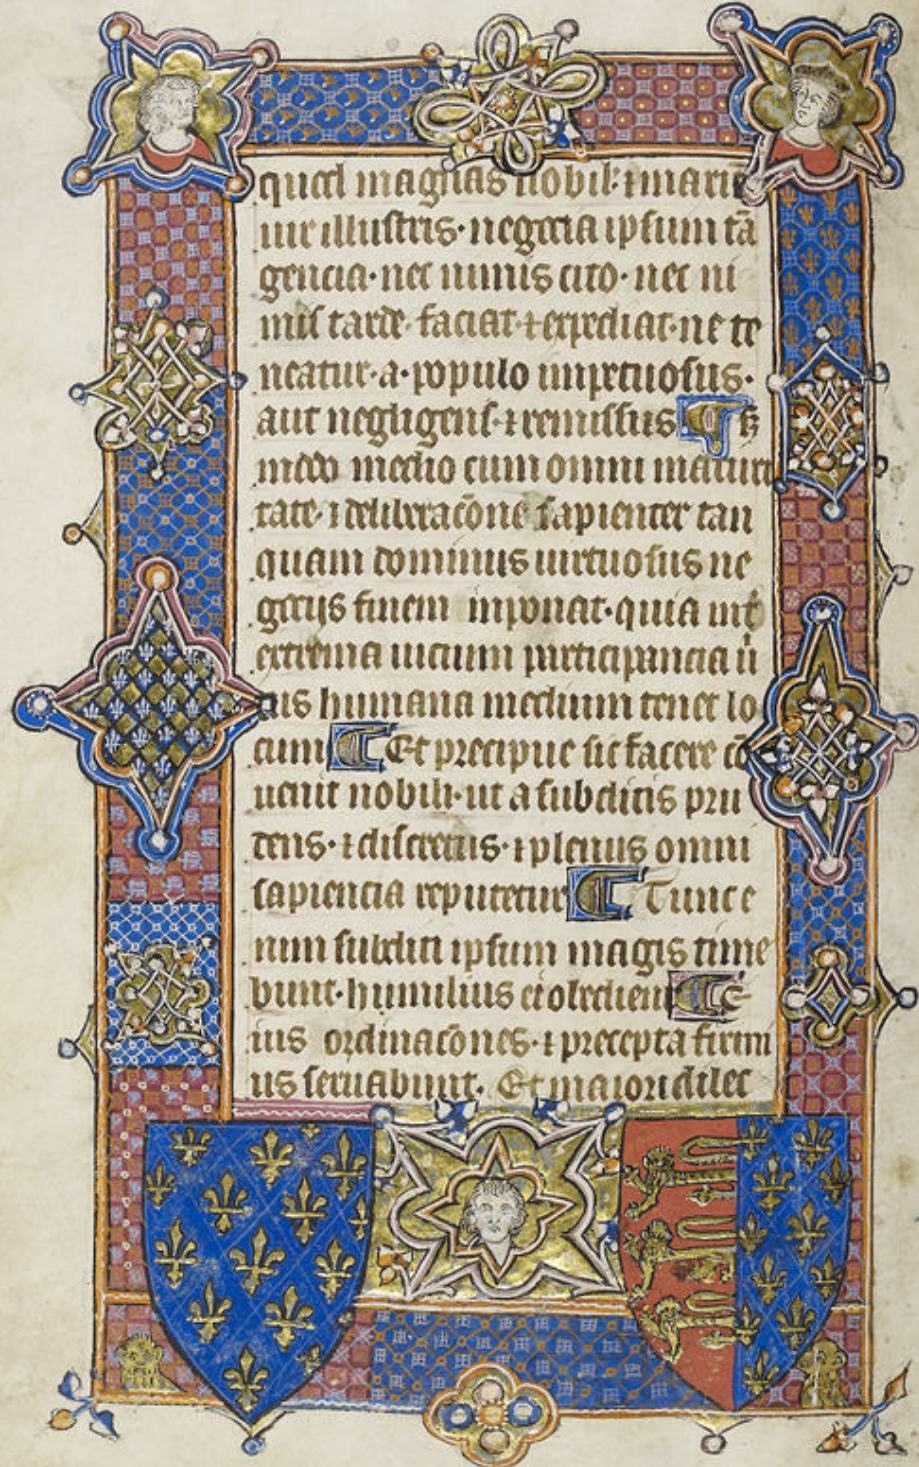 quod magnas nobil⁊ maxi
uir illustris· negocia ipsum tā
gencia· nec nimis cito· nec ni
mis tarde· faciat· ⁊ expediat· ne te
neatur· a· populo impetuosus·
aut negligens· ⁊ remissus
modo medio cum omni maturi
tate· ⁊ deliberacōne sapienter tan
quam dominus uirtuosus ne
gocijs finem inponat· quia int̄
extrema uicium participancia ū
tus humana medium tenet lo
cum Et precipue sic facere cō
uenit nobili· ut a subditis pru
dens· ⁊ discretus· ⁊ plenus omni
sapiencia reputetur Tunc e
nim subditi ipsum magis time
bunt· humilius ei obedient e
ius ordinacōnes· ⁊ precepta firmi
us seruabunt· Et maiori dilec